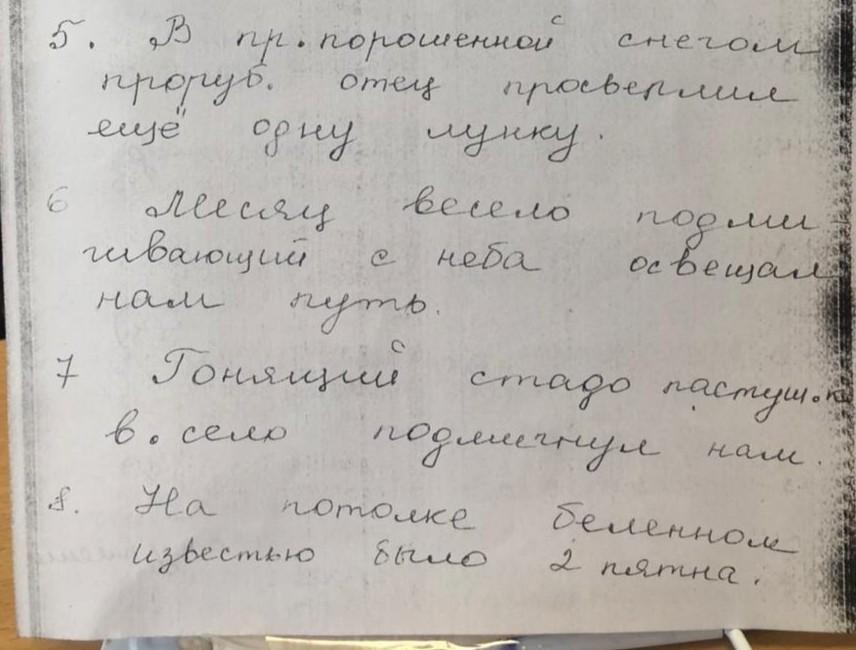 5. В пр.порошенной снегом
проруб. отец просверлил
ещё одну лунку.
6 Месяц весело подми-
гивающий с неба освещал
нам путь.
7 Гонящий стадо пастуш.к
в.село подмигнул нам.
8. На потолке беленном
известью было 2 пятна.